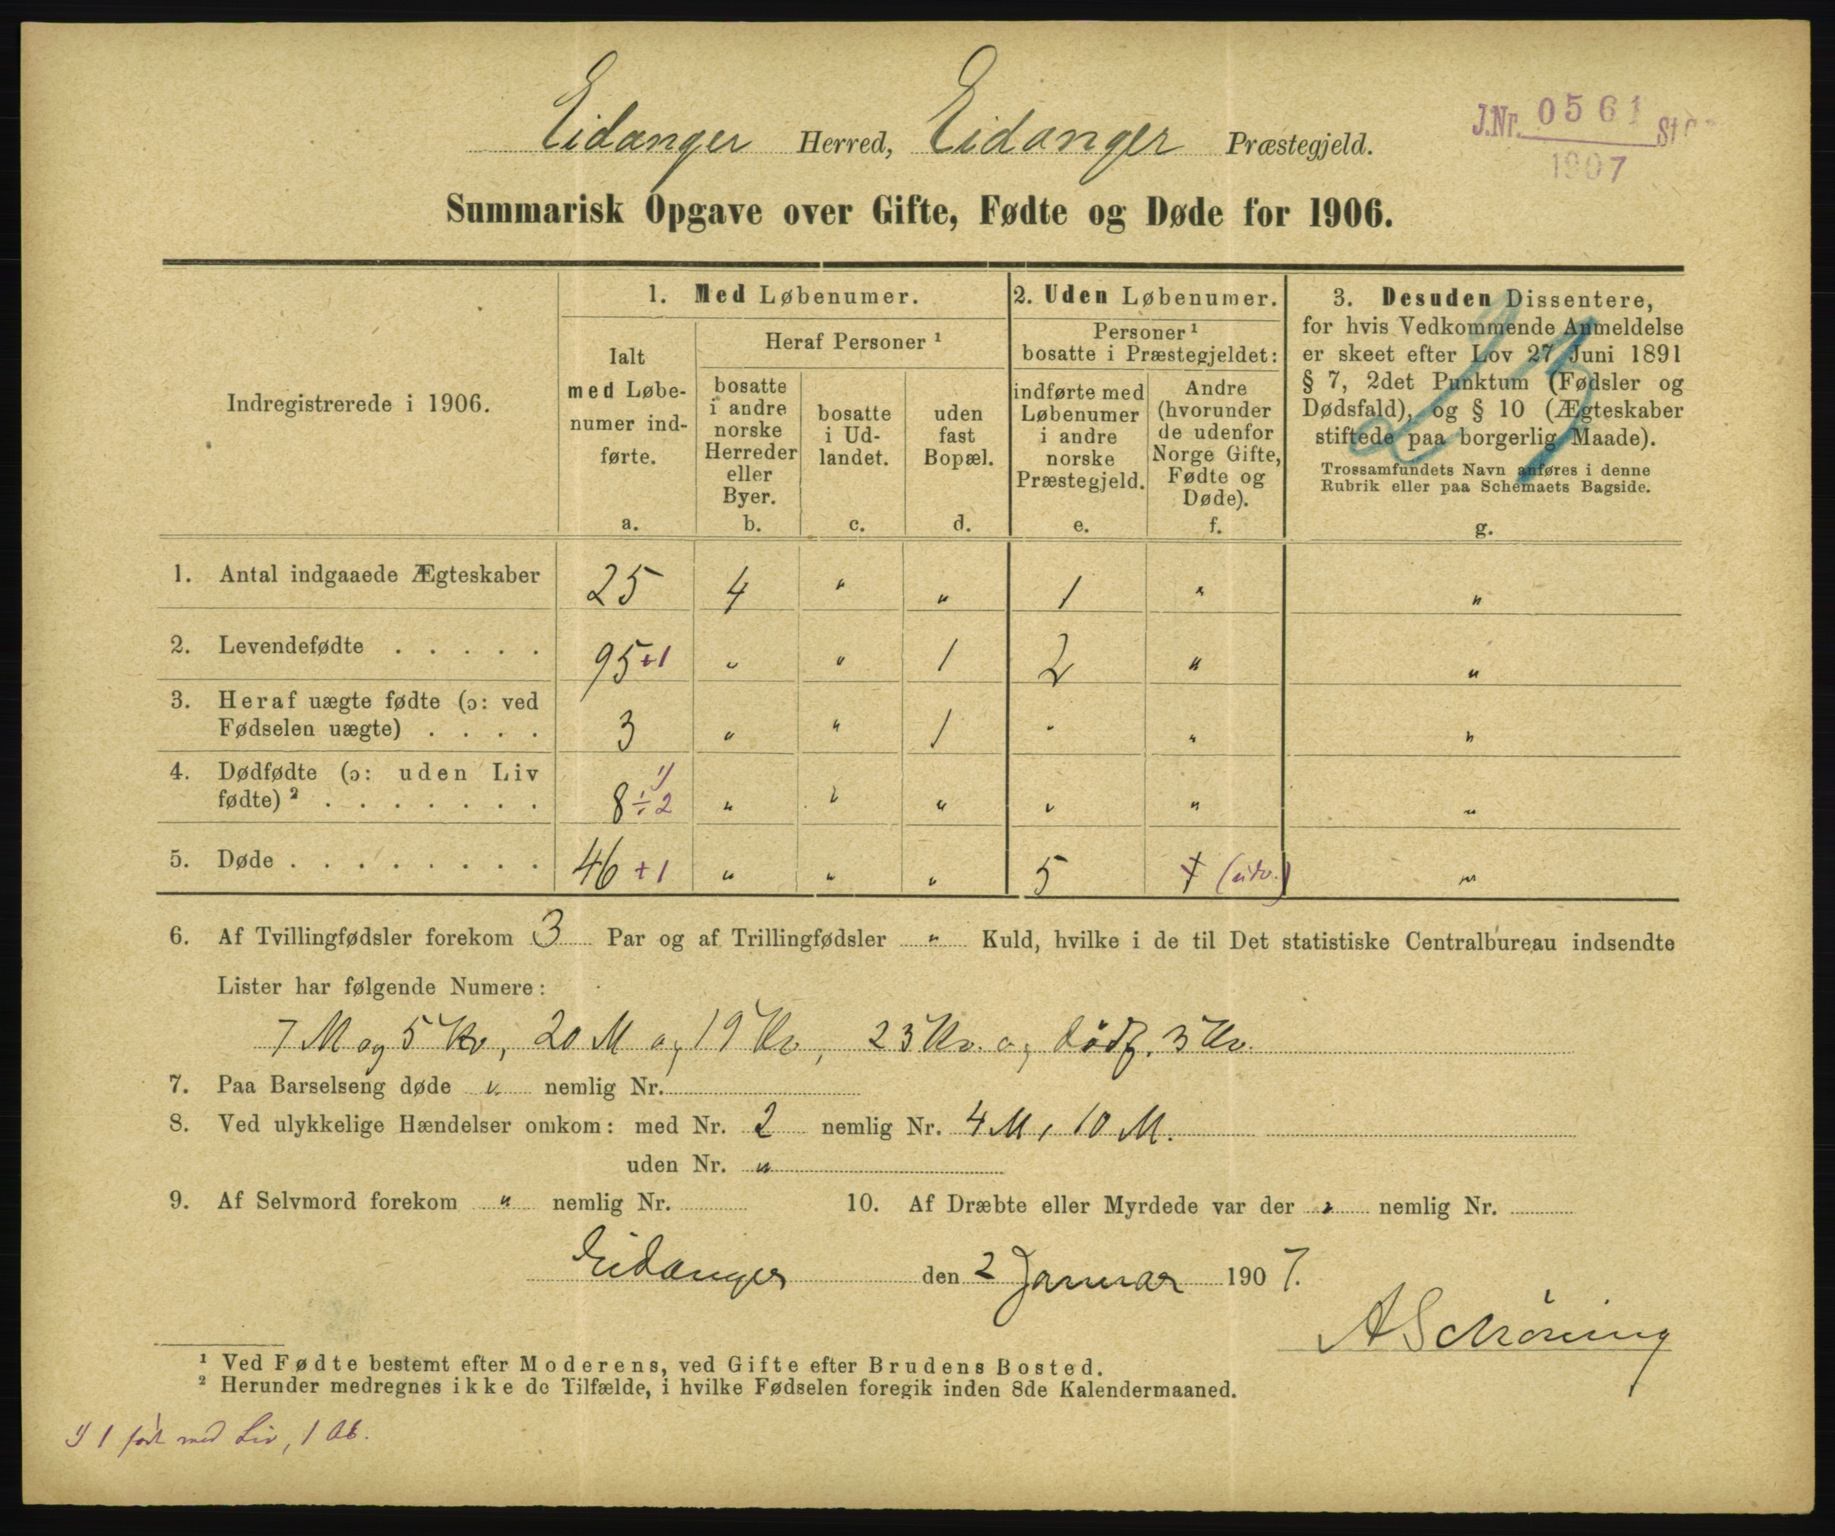 Eidanger Herred, Eidanger Præstegjeld.
J.Nr. 0561 St
1907
Summarisk Opgave over Gifte, Fødte og Døde for 1906.
Indregistrerede i 1906.
1. Med Løbenumer.
Ialt
med Løbe-
numer ind-
førte.
a.
Heraf Personer ¹
bosatte
i andre
norske
Herreder
eller
Byer.
b.
bosatte
i Ud-
landet.
c.
uden
fast
Bopæl.
d.
2. Uden Løbenumer.
Personer ¹
bosatte i Præstegjeldet:
indførte med
Løbenumer
i andre
norske
Præstegjeld.
e.
Andre
(hvorunder
de udenfor
Norge Gifte,
Fødte og
Døde).
f.
3. Desuden Dissentere,
for hvis Vedkommende Anmeldelse
er skeet efter Lov 27 Juni 1891
§ 7, 2det Punktum (Fødsler og
Dødsfald), og § 10 (Ægteskaber
stiftede paa borgerlig Maade).
Trossamfundets Navn anføres i denne
Rubrik eller paa Schemaets Bagside.
g.
23
1. Antal indgaaede Ægteskaber 25 4 " " 1 " "
2. Levendefødte . . . . . 95 +1 " " 1 2 " "
3. Heraf uægte fødte (ɔ: ved
Fødselen uægte) . . . . 3 " " 1 " " "
4. Dødfødte (ɔ: uden Liv
fødte) ² . . . . . . . 8 ÷ 2 1) " " " " " "
5. Døde . . . . . . . . 46 +1 " " " 5 † (udv.) "
6. Af Tvillingfødsler forekom 3 Par og af Trillingfødsler " Kuld, hvilke i de til Det statistiske Centralbureau indsendte
Lister har følgende Numere:
7 M og 5 Kv, 20 M og 19 Kv, 23 Kv. og dødf. 3 Kv.
7. Paa Barselseng døde " nemlig Nr.
8. Ved ulykkelige Hændelser omkom: med Nr. 2 nemlig Nr. 4 M, 10 M.
uden Nr. "
9. Af Selvmord forekom " nemlig Nr.
10. Af Dræbte eller Myrdede var der " nemlig Nr.
Eidanger den 2 Januar 1907.
A Schöning
¹ Ved Fødte bestemt efter Moderens, ved Gifte efter Brudens Bosted.
² Herunder medregnes ikke de Tilfælde, i hvilke Fødselen foregik inden 8de Kalendermaaned.
1) 1 født med Liv, 1 Ab.